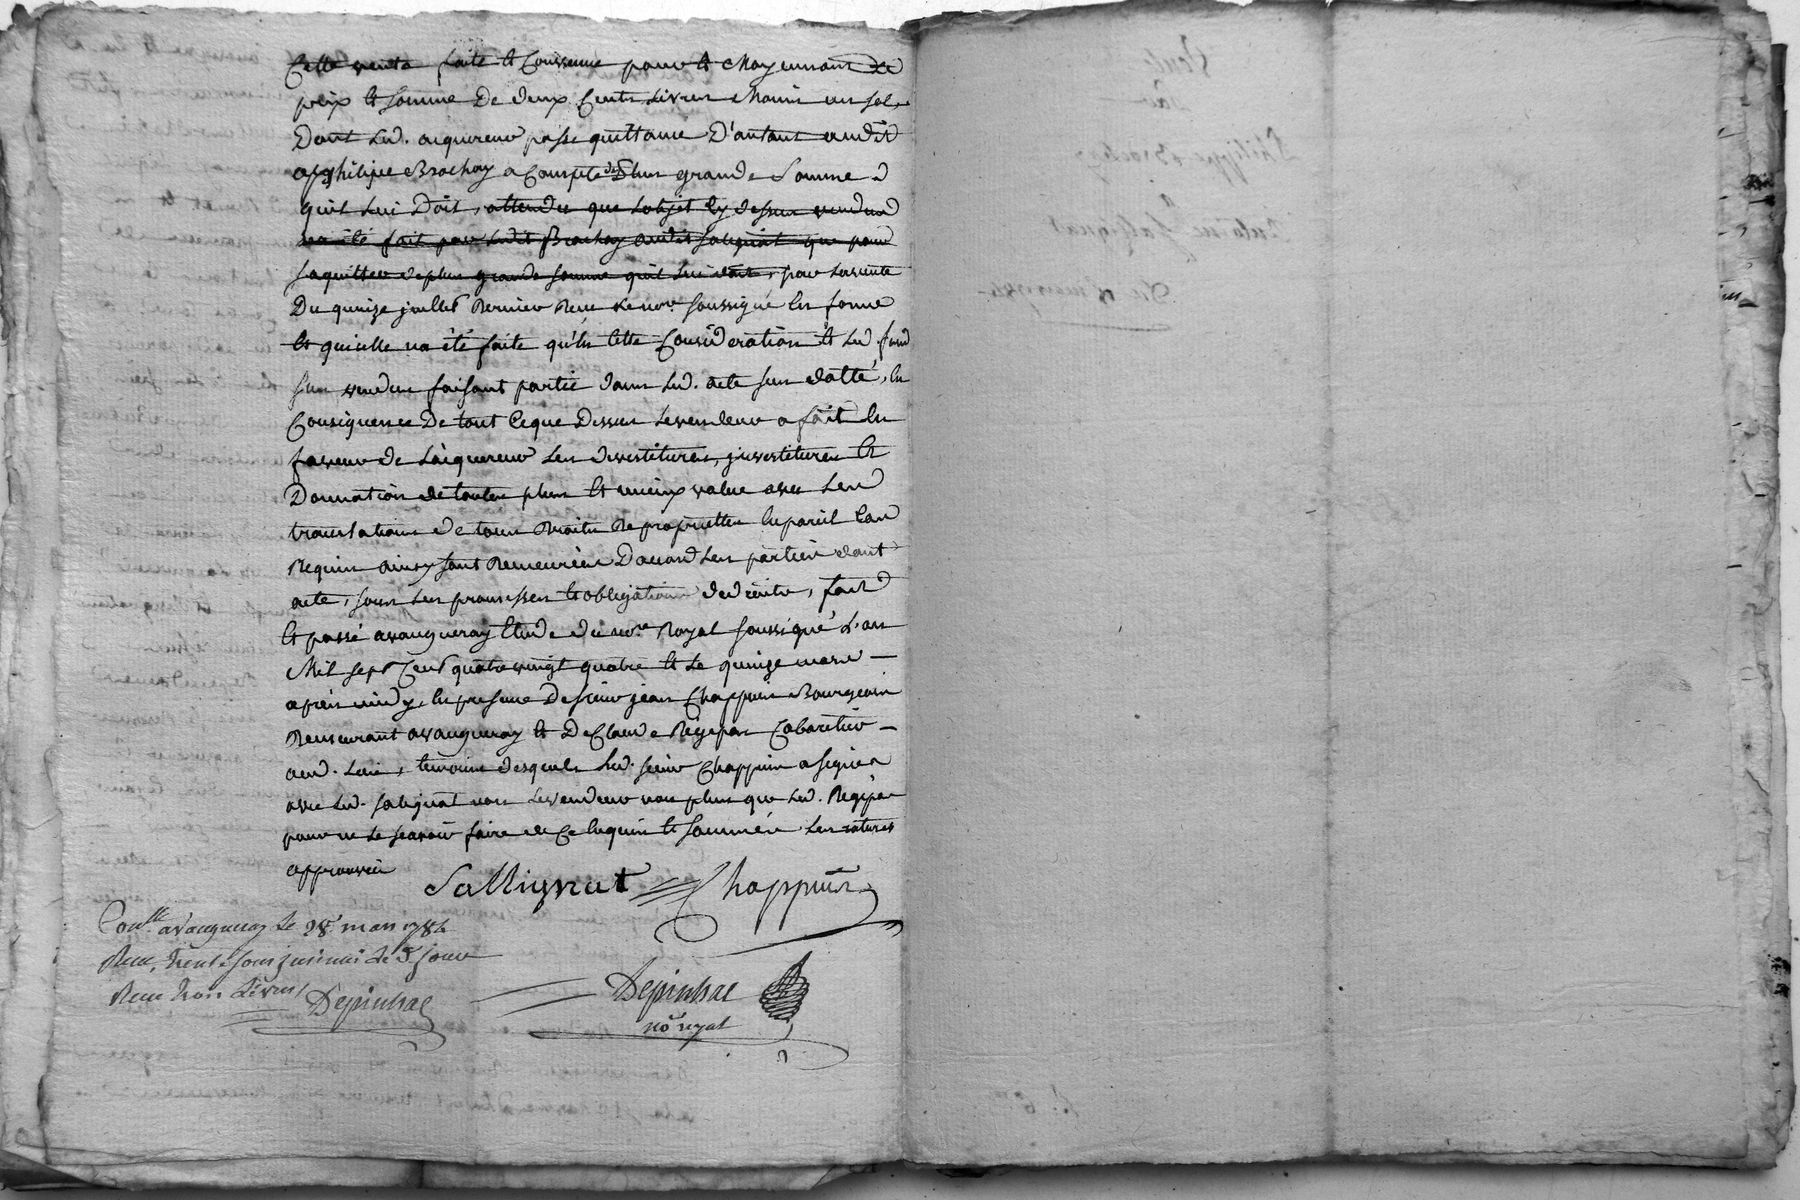 Cette vente faite et Convenue pour et Moyennant le
prix et somme De deux Cents Livres Moins un sol,
Dont Led. acquereur passe quittance D'autant audit
philipe Brochay a Compte des plus grande Somme
quil Lui Doit, attendu que Lobjet Cy dessus vendu
na été fait par Ledit Brochay audit Salignat que pour
saquitter de plus grande somme quil Lui doit, par Lavente
Du quinze juillet Dernier Reçue Le nore. soussigné En forme
Et quicelle na été faite qu'En Cette Considération Et Led. fond
sus vendu faisant partie dans Led. acte sus datté, En
Consiquence De tout Ceque Dessus Levendeur a fait En
faveur de Lacquereur Les devestitures, jnvestitures Et
Donnation de toutes plus Et mieux value avec Les
translations de tous Droits De proprietté En pareil Cas
Requis ainsy sont Demeurées Daccord Les parties dont
acte, sous Les promesses Et obligations de droits, fait
Et passé avaugneray Etude du nore. Royal soussigné L'an
Mil sept Cent quatre vingt quatre Et Le quinze mars
aprés midy, En presence De sieur jean Chappuis Bourgeois
Demeurant avaugneray Et De Claude Régipas Cabaretier
aud. Lieu, temoins desquels Led. sieur Chappuis a signé
avec Led. Salignat non Levendeur non plus que Led. Régipas
pour ne Le scavoir faire de Ce Enquis Et sommés Les ratures
approuvées
Sallignat Chappuis
Conlle. avaugneray Le 28 mars 1784
Reçu trois Livres
Depinhac
Depinhac
nore royal
Vente
par
Philippe Brochay
a
Antoine Salignat